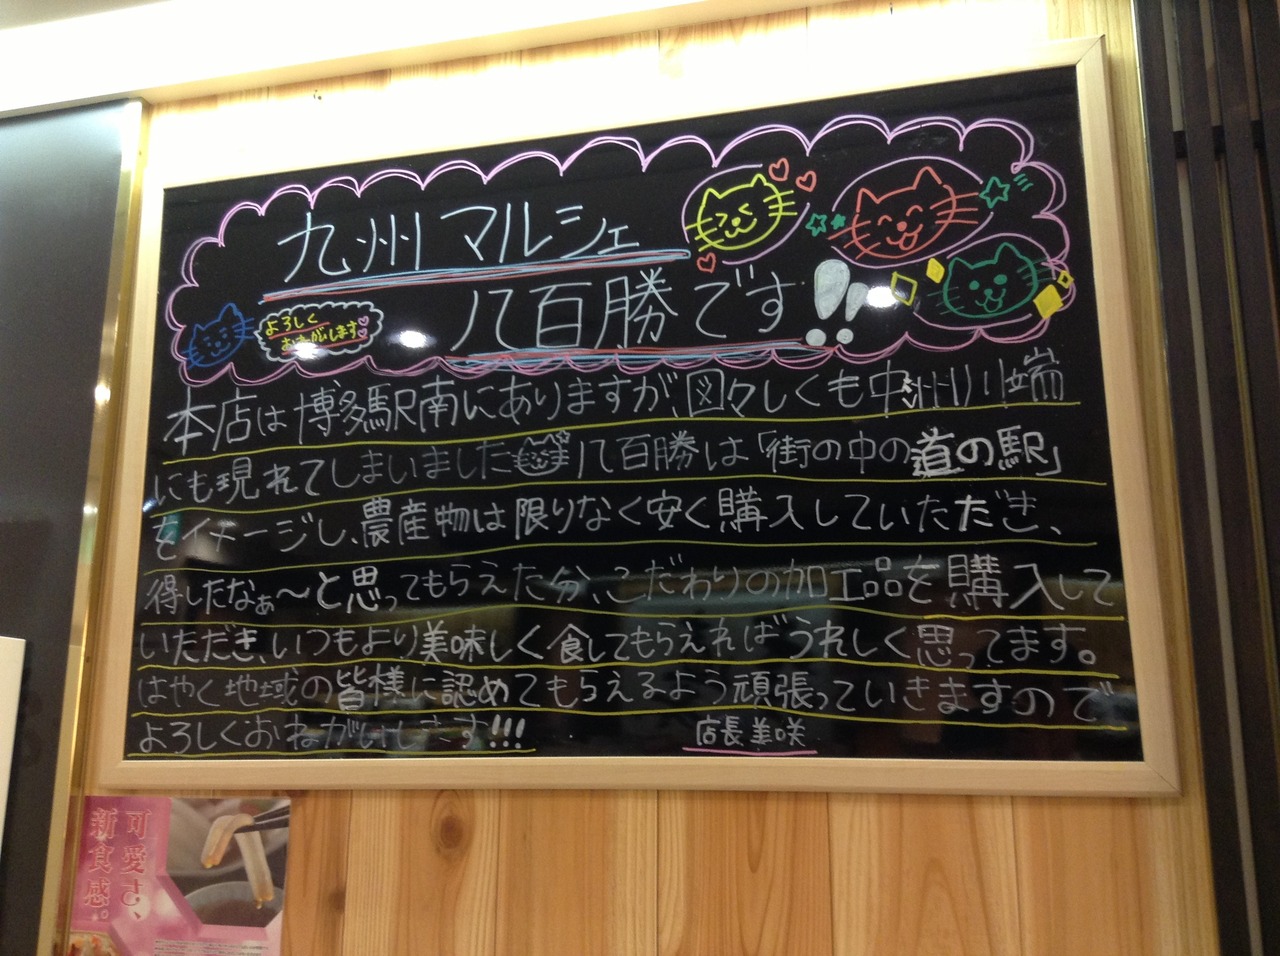 九州マルシェ
八百勝です!!
よろしく
おねがいします
本店は博多駅南にありますが、図々しくも中州川端
にも現れてしまいました 八百勝は「街の中の道の駅」
をイメージし、農産物は限りなく安く購入していただき、
得したなぁ〜と思ってもらえた分、こだわりの加工品を購入して
いただき、いつもより美味しく食してもらえればうれしく思ってます。
はやく地域の皆様に認めてもらえるよう頑張っていきますので
よろしくおねがいします!!!
店長 美咲
可愛さ、
新食感。